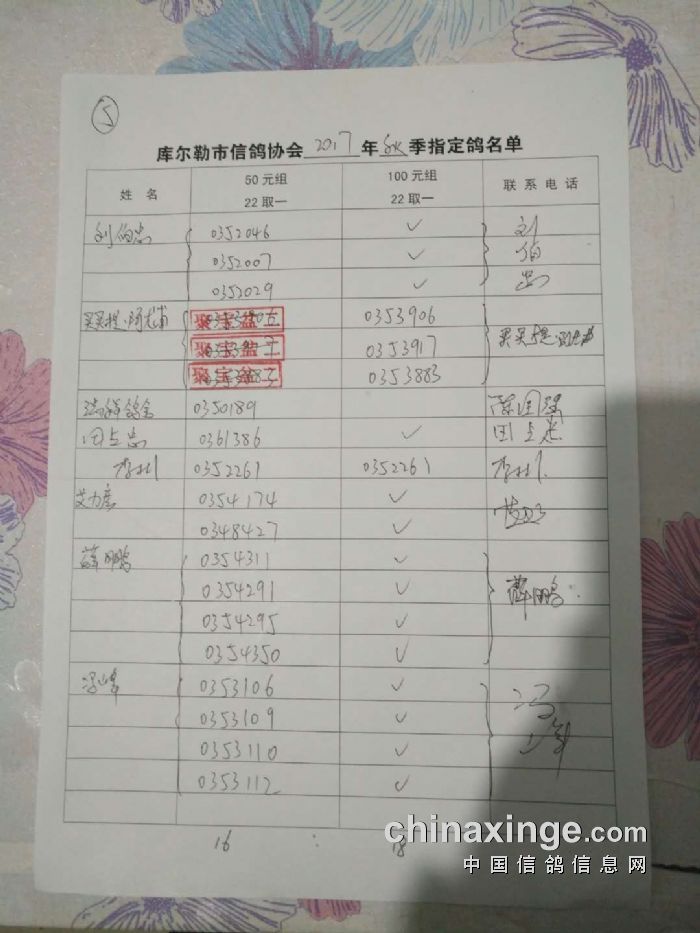 5
库尔勒市信鸽协会 2017 年 秋 季指定鸽名单
姓 名 50元组 22取一 100元组 22取一 联系电话
刘伯忠 0352046 ✓ 刘
0352007 ✓ 伯
0352029 ✓ 忠
买买提·阿尤甫 聚宝盆 0353906 买买提
聚宝盆 0353917
聚宝盆 0353883
瑞祥鸽舍 0350189 陈国强
田立忠 0361386 ✓ 田立忠
0352261 0352261
艾力库 0354174 ✓
0348427 ✓
薛鹏 0354311 ✓ 薛鹏
0354291 ✓
0354295 ✓
0354350 ✓
冯峰 0353106 ✓ 冯峰
0353109 ✓
0353110 ✓
0353112 ✓
16 18
chinaxinge.com
中国信鸽信息网